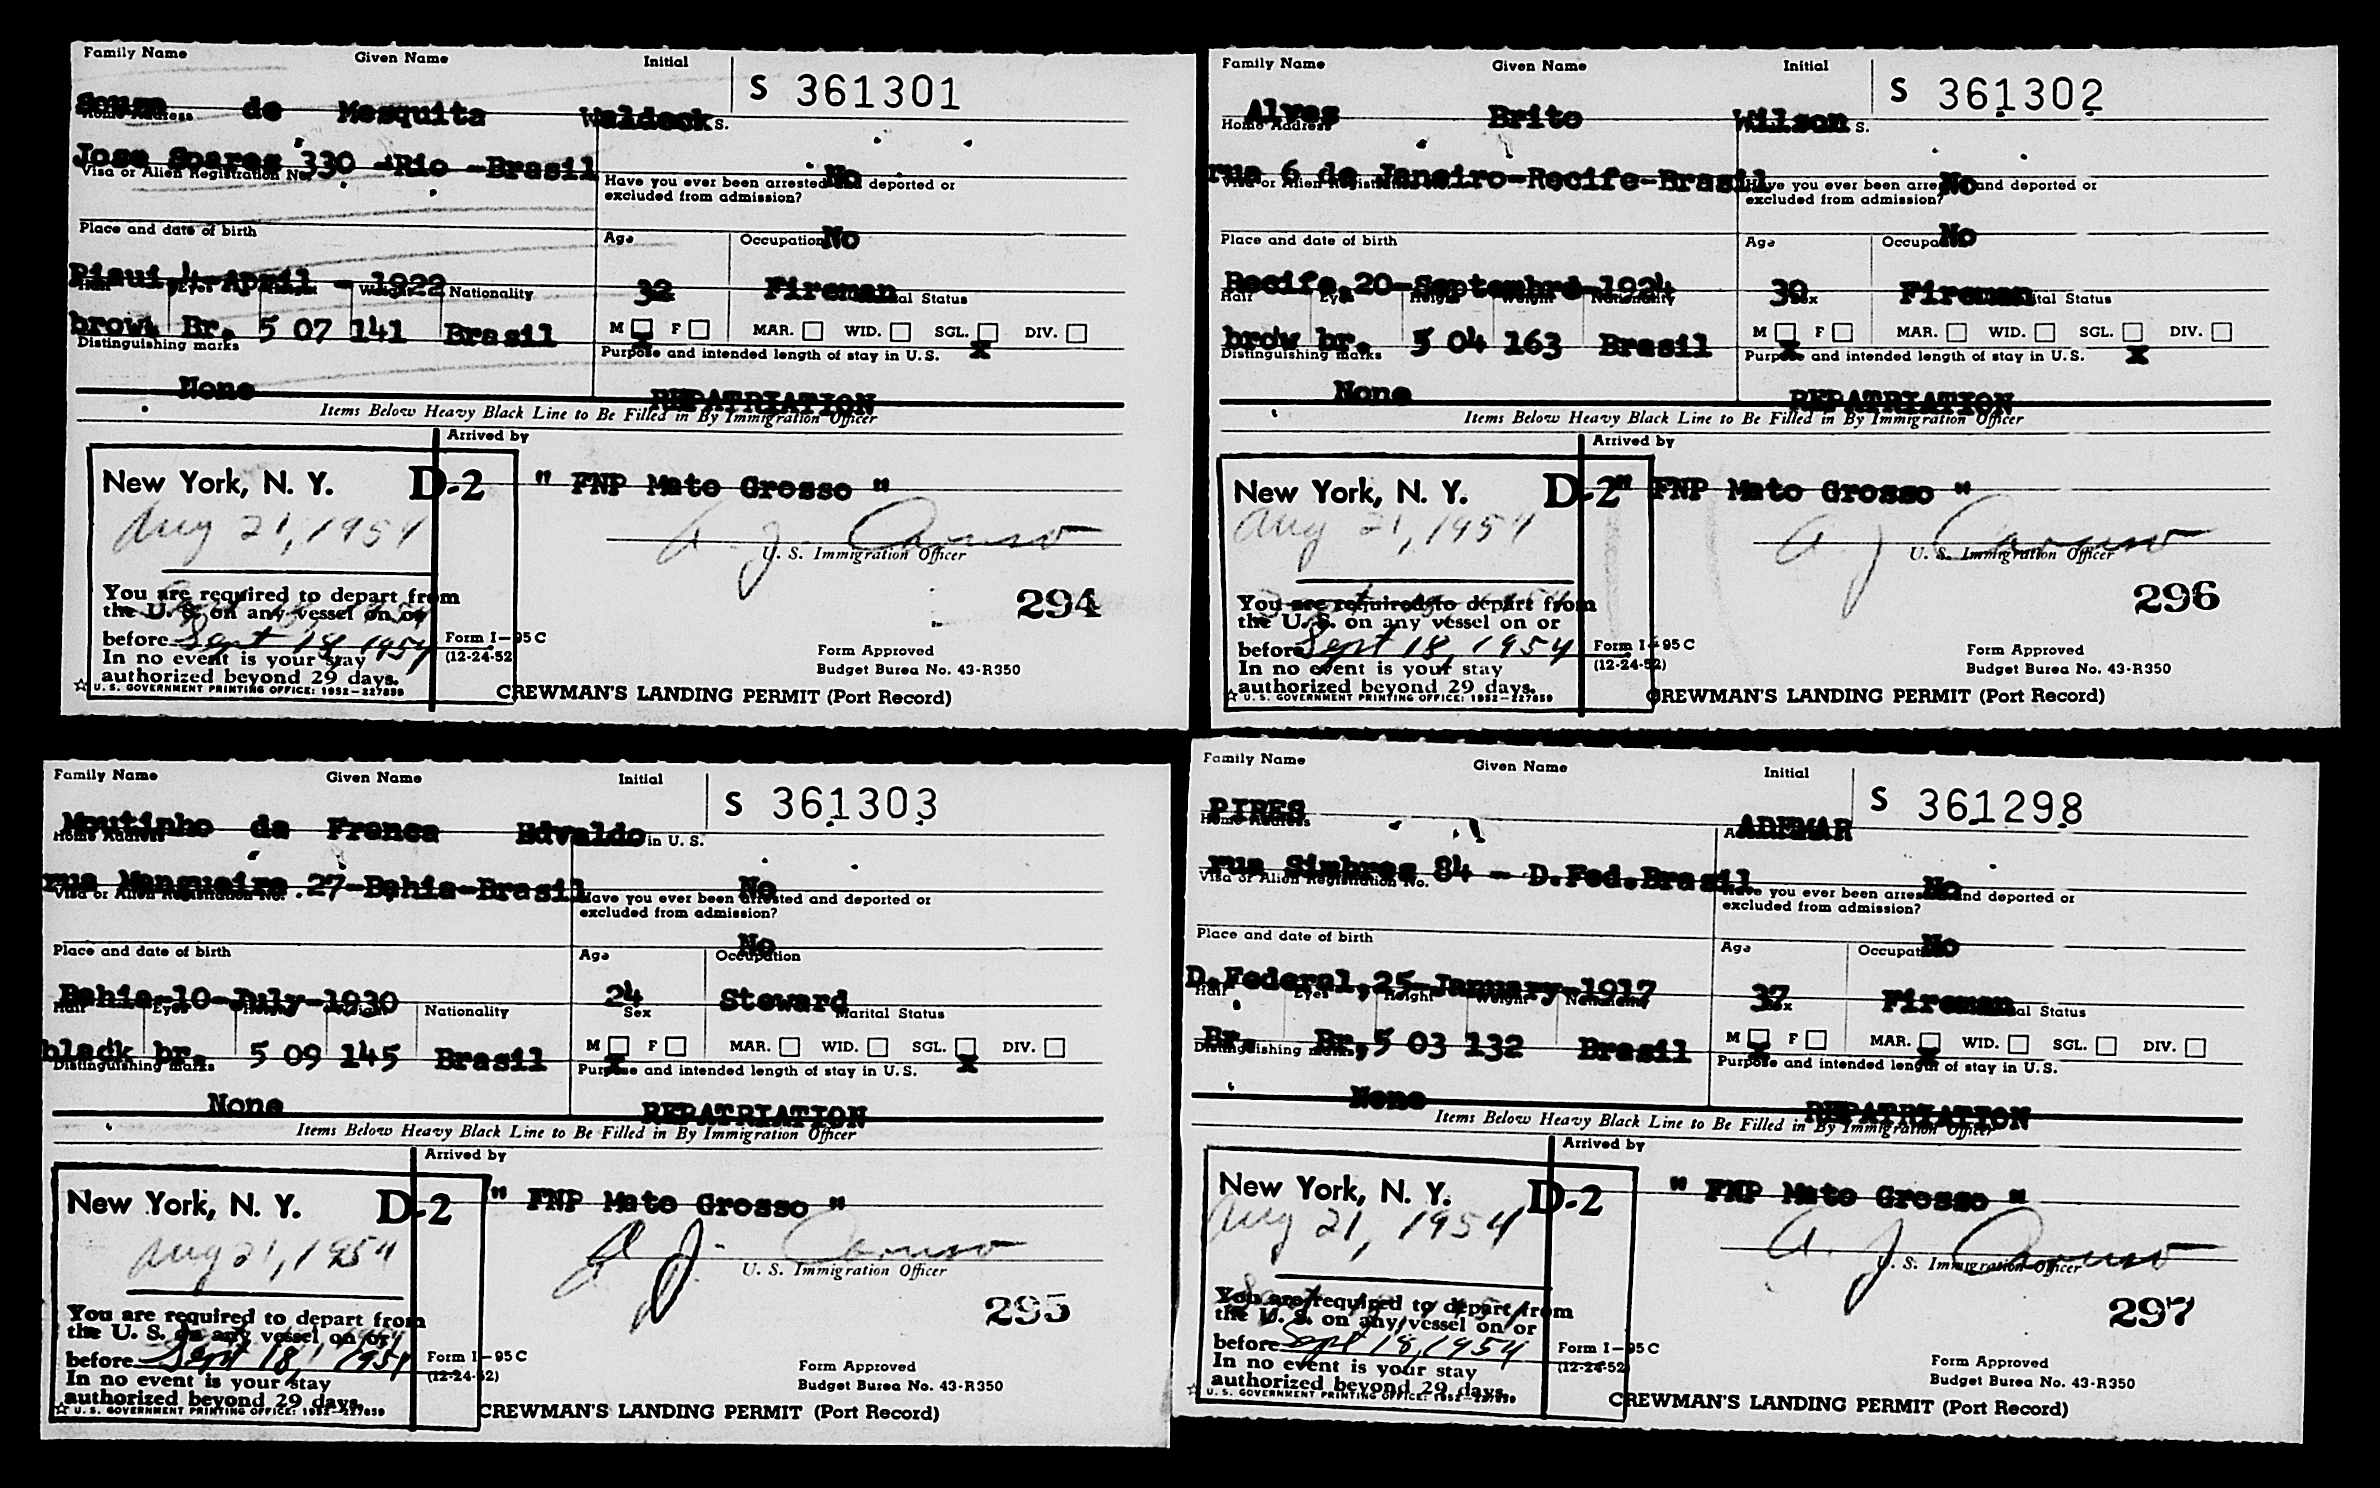 Family Name Given Name Initial
S 361301
Souza de Mesquita Waldeck
Home Address S.
Jose Soares 330 - Rio - Brasil
Visa or Alien Registration No.
No
Have you ever been arrested and deported or
excluded from admission?
No
Place and date of birth Age Occupation
Piaui, 4-April - 1922 32 Fireman
Hair Eyes Height Weight Nationality Marital Status
brown Br. 5 07 141 Brasil
M F MAR. WID. SGL. DIV.
X X
Distinguishing marks Purpose and intended length of stay in U.S.
None REPATRIATION
Items Below Heavy Black Line to Be Filled in By Immigration Officer
Arrived by
New York, N. Y. D-2 " FNP Mato Grosso "
Aug 21, 1954 A. J. Caruso
U. S. Immigration Officer
You are required to depart from
the U. S. on any vessel on or
before Sept 18 1954
In no event is your stay
authorized beyond 29 days.
294
Form I-95 C
(12-24-52)
Form Approved
Budget Burea No. 43-R350
☆ U. S. GOVERNMENT PRINTING OFFICE: 1952-227859
CREWMAN'S LANDING PERMIT (Port Record)
Family Name Given Name Initial
S 361302
Alves Brito Wilson
Home Address S.
rua 6 de Janeiro-Recife-Brasil
No
Have you ever been arrested and deported or
excluded from admission?
No
Place and date of birth Age Occupation
Recife, 20-Septembre-1924 30 Fireman
Hair Eyes Height Weight Nationality Sex Marital Status
brow br. 5 04 163 Brasil
M F MAR. WID. SGL. DIV.
X X
Distinguishing marks Purpose and intended length of stay in U.S.
None REPATRIATION
Items Below Heavy Black Line to Be Filled in By Immigration Officer
Arrived by
New York, N. Y. D-2 " FNP Mato Grosso "
Aug 21, 1954 A J Caruso
U. S. Immigration Officer
You are required to depart from
the U. S. on any vessel on or
before Sept 18, 1954
In no event is your stay
authorized beyond 29 days.
296
Form I-95 C
(12-24-52)
Form Approved
Budget Burea No. 43-R350
☆ U. S. GOVERNMENT PRINTING OFFICE: 1952-227859
CREWMAN'S LANDING PERMIT (Port Record)
Family Name Given Name Initial
S 361303
Moutinho da Franca Edvaldo
Home Address in U. S.
rua Mangueira 27-Bahia-Brasil
Visa or Alien Registration No.
No
Have you ever been arrested and deported or
excluded from admission?
No
Place and date of birth Age Occupation
Bahia-10-July-1930 24 Steward
Hair Eyes Height Weight Nationality Sex Marital Status
black br. 5 09 145 Brasil
M F MAR. WID. SGL. DIV.
X X
Distinguishing marks Purpose and intended length of stay in U.S.
None REPATRIATION
Items Below Heavy Black Line to Be Filled in By Immigration Officer
Arrived by
New York, N. Y. D-2 " FNP Mato Grosso "
Aug 21, 1954 A J. Caruso
U. S. Immigration Officer
You are required to depart from
the U. S. on any vessel on or
before Sept 18, 1954
In no event is your stay
authorized beyond 29 days.
295
Form I-95 C
(12-24-52)
Form Approved
Budget Burea No. 43-R350
☆ U. S. GOVERNMENT PRINTING OFFICE: 1952-227859
CREWMAN'S LANDING PERMIT (Port Record)
Family Name Given Name Initial
S 361298
PIRES ADEMAR
Home Address
rua Simbres 84 - D.Fed.Brasil
Visa or Alien Registration No.
No
Have you ever been arrested and deported or
excluded from admission?
No
Place and date of birth Age Occupation
D.Federal, 25-January-1917 37 Fireman
Hair Eyes Height Weight Nationality Sex Marital Status
Br. Br. 5 03 132 Brasil
M F MAR. WID. SGL. DIV.
X X
Distinguishing marks Purpose and intended length of stay in U.S.
None REPATRIATION
Items Below Heavy Black Line to Be Filled in By Immigration Officer
Arrived by
New York, N. Y. D-2 " FNP Mato Grosso "
Aug 21, 1954 A. J Caruso
U. S. Immigration Officer
You are required to depart from
the U. S. on any vessel on or
before Sept 18, 1954
In no event is your stay
authorized beyond 29 days.
297
Form I-95 C
(12-24-52)
Form Approved
Budget Burea No. 43-R350
☆ U. S. GOVERNMENT PRINTING OFFICE: 1952-227859
CREWMAN'S LANDING PERMIT (Port Record)